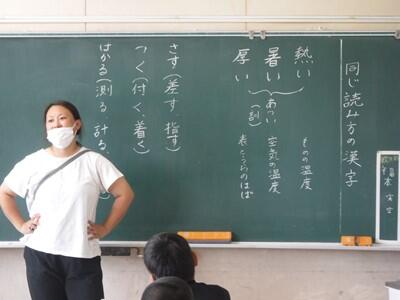 同じ読み方の漢字
熱い ものの温度
暑い あつい 空気の温度
厚い (例) 表とうらのはば
さす(差す 指す)
つく(付く、着く)
はかる(測る、計る、